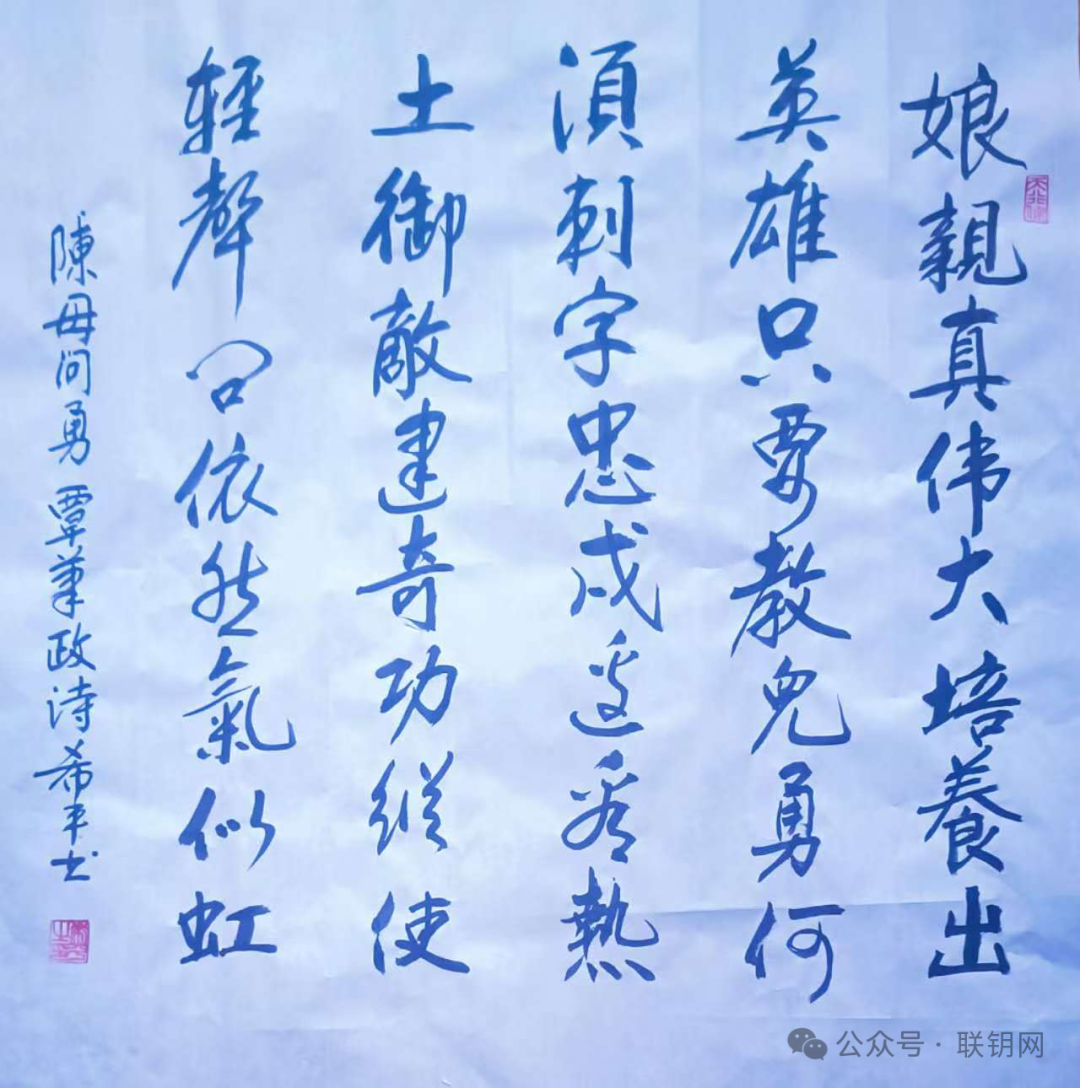 娘親真伟大培養出
英雄只要教兒勇何
須刺字忠戍边看熱
土御敵建奇功縱使
輕聲问依然氣似虹
陳母问勇 覃革政诗 希平书
公众号 · 联钥网